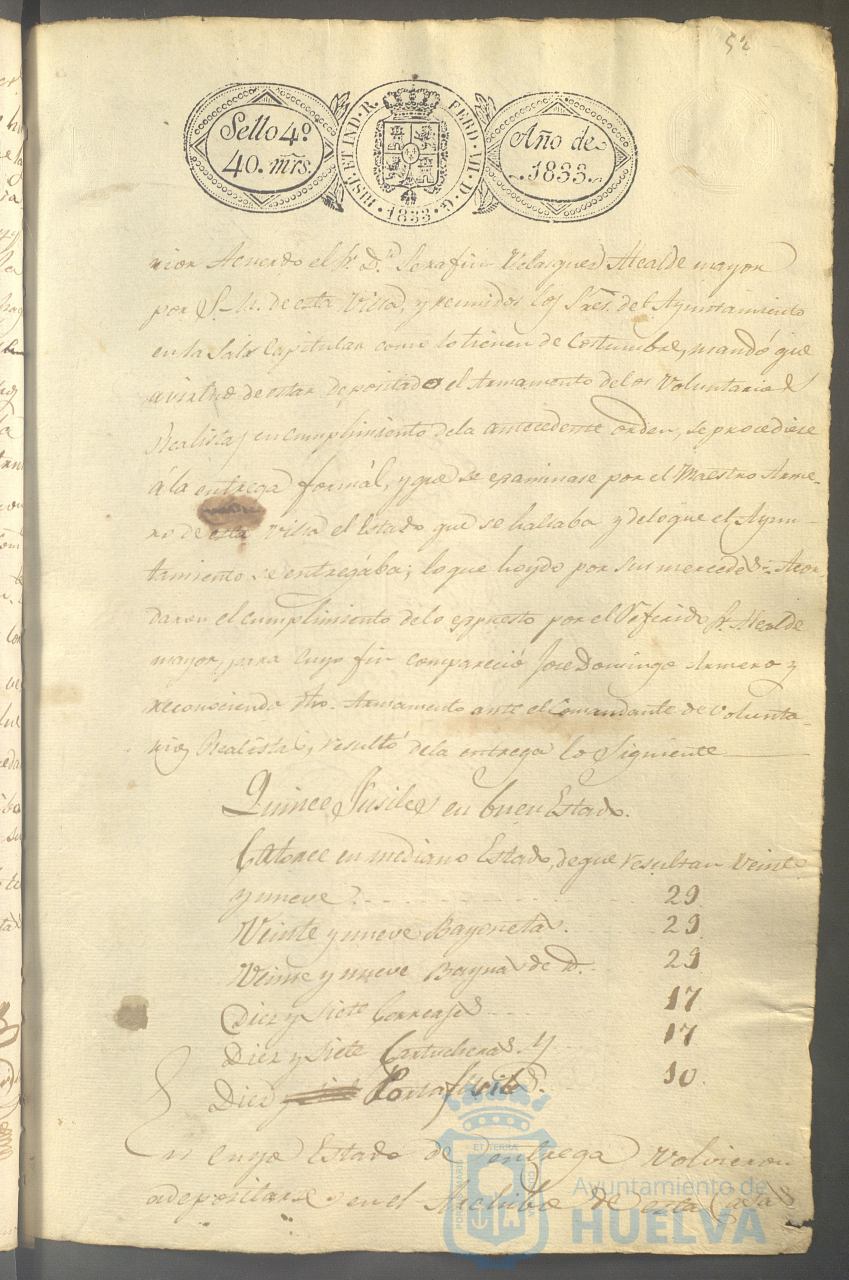 52
Sello 4º
40. mrs.
HISP. ET IND. R. FERD. VII. D. G. 1833
Año de
1833
rior Acuerdo el Sr. Dn. Serafin Velasques Alcalde mayor
por S. M. de esta Villa, y reunidos los Sres. del Ayuntamiento
en la Sala Capitular como lo tienen de Costumbre, mandó que
a virtud de estar depositado el Armamento de los Voluntarios
Realistas y en cumplimiento dela antecedente orden, se procediese
á la entrega formál, y que se esaminase por el Maestro Arme-
ro de esta Villa el Estado que se hallaba y delo que el Ayun-
tamiento se entregába; lo que hoydo por sus mercedes: Acor-
daron el cumplimiento delo espuesto por el Referido Sr. Alcalde
mayor, para cuyo fin compareció Jose Domingo Armero y
reconociendo dho. Armamento ante el Comandante de Volunta-
rios Realistas, resultó dela entrega lo Siguiente
Quince Fusiles en buen Estado.
Catorce en mediano Estado, de que resultan Veinte
y nueve 29
Veinte y nueve Bayonetas. 29
Veinte y nueve Baynas de D. 29
Diez y siete Correajes 17
Diez y siete Cartucheras. y 17
Diez Portafusiles. 10
En cuyo Estado de entrega volvieron
a depositarse en el Archibo de estas Casas
Ayuntamiento de
HUELVA